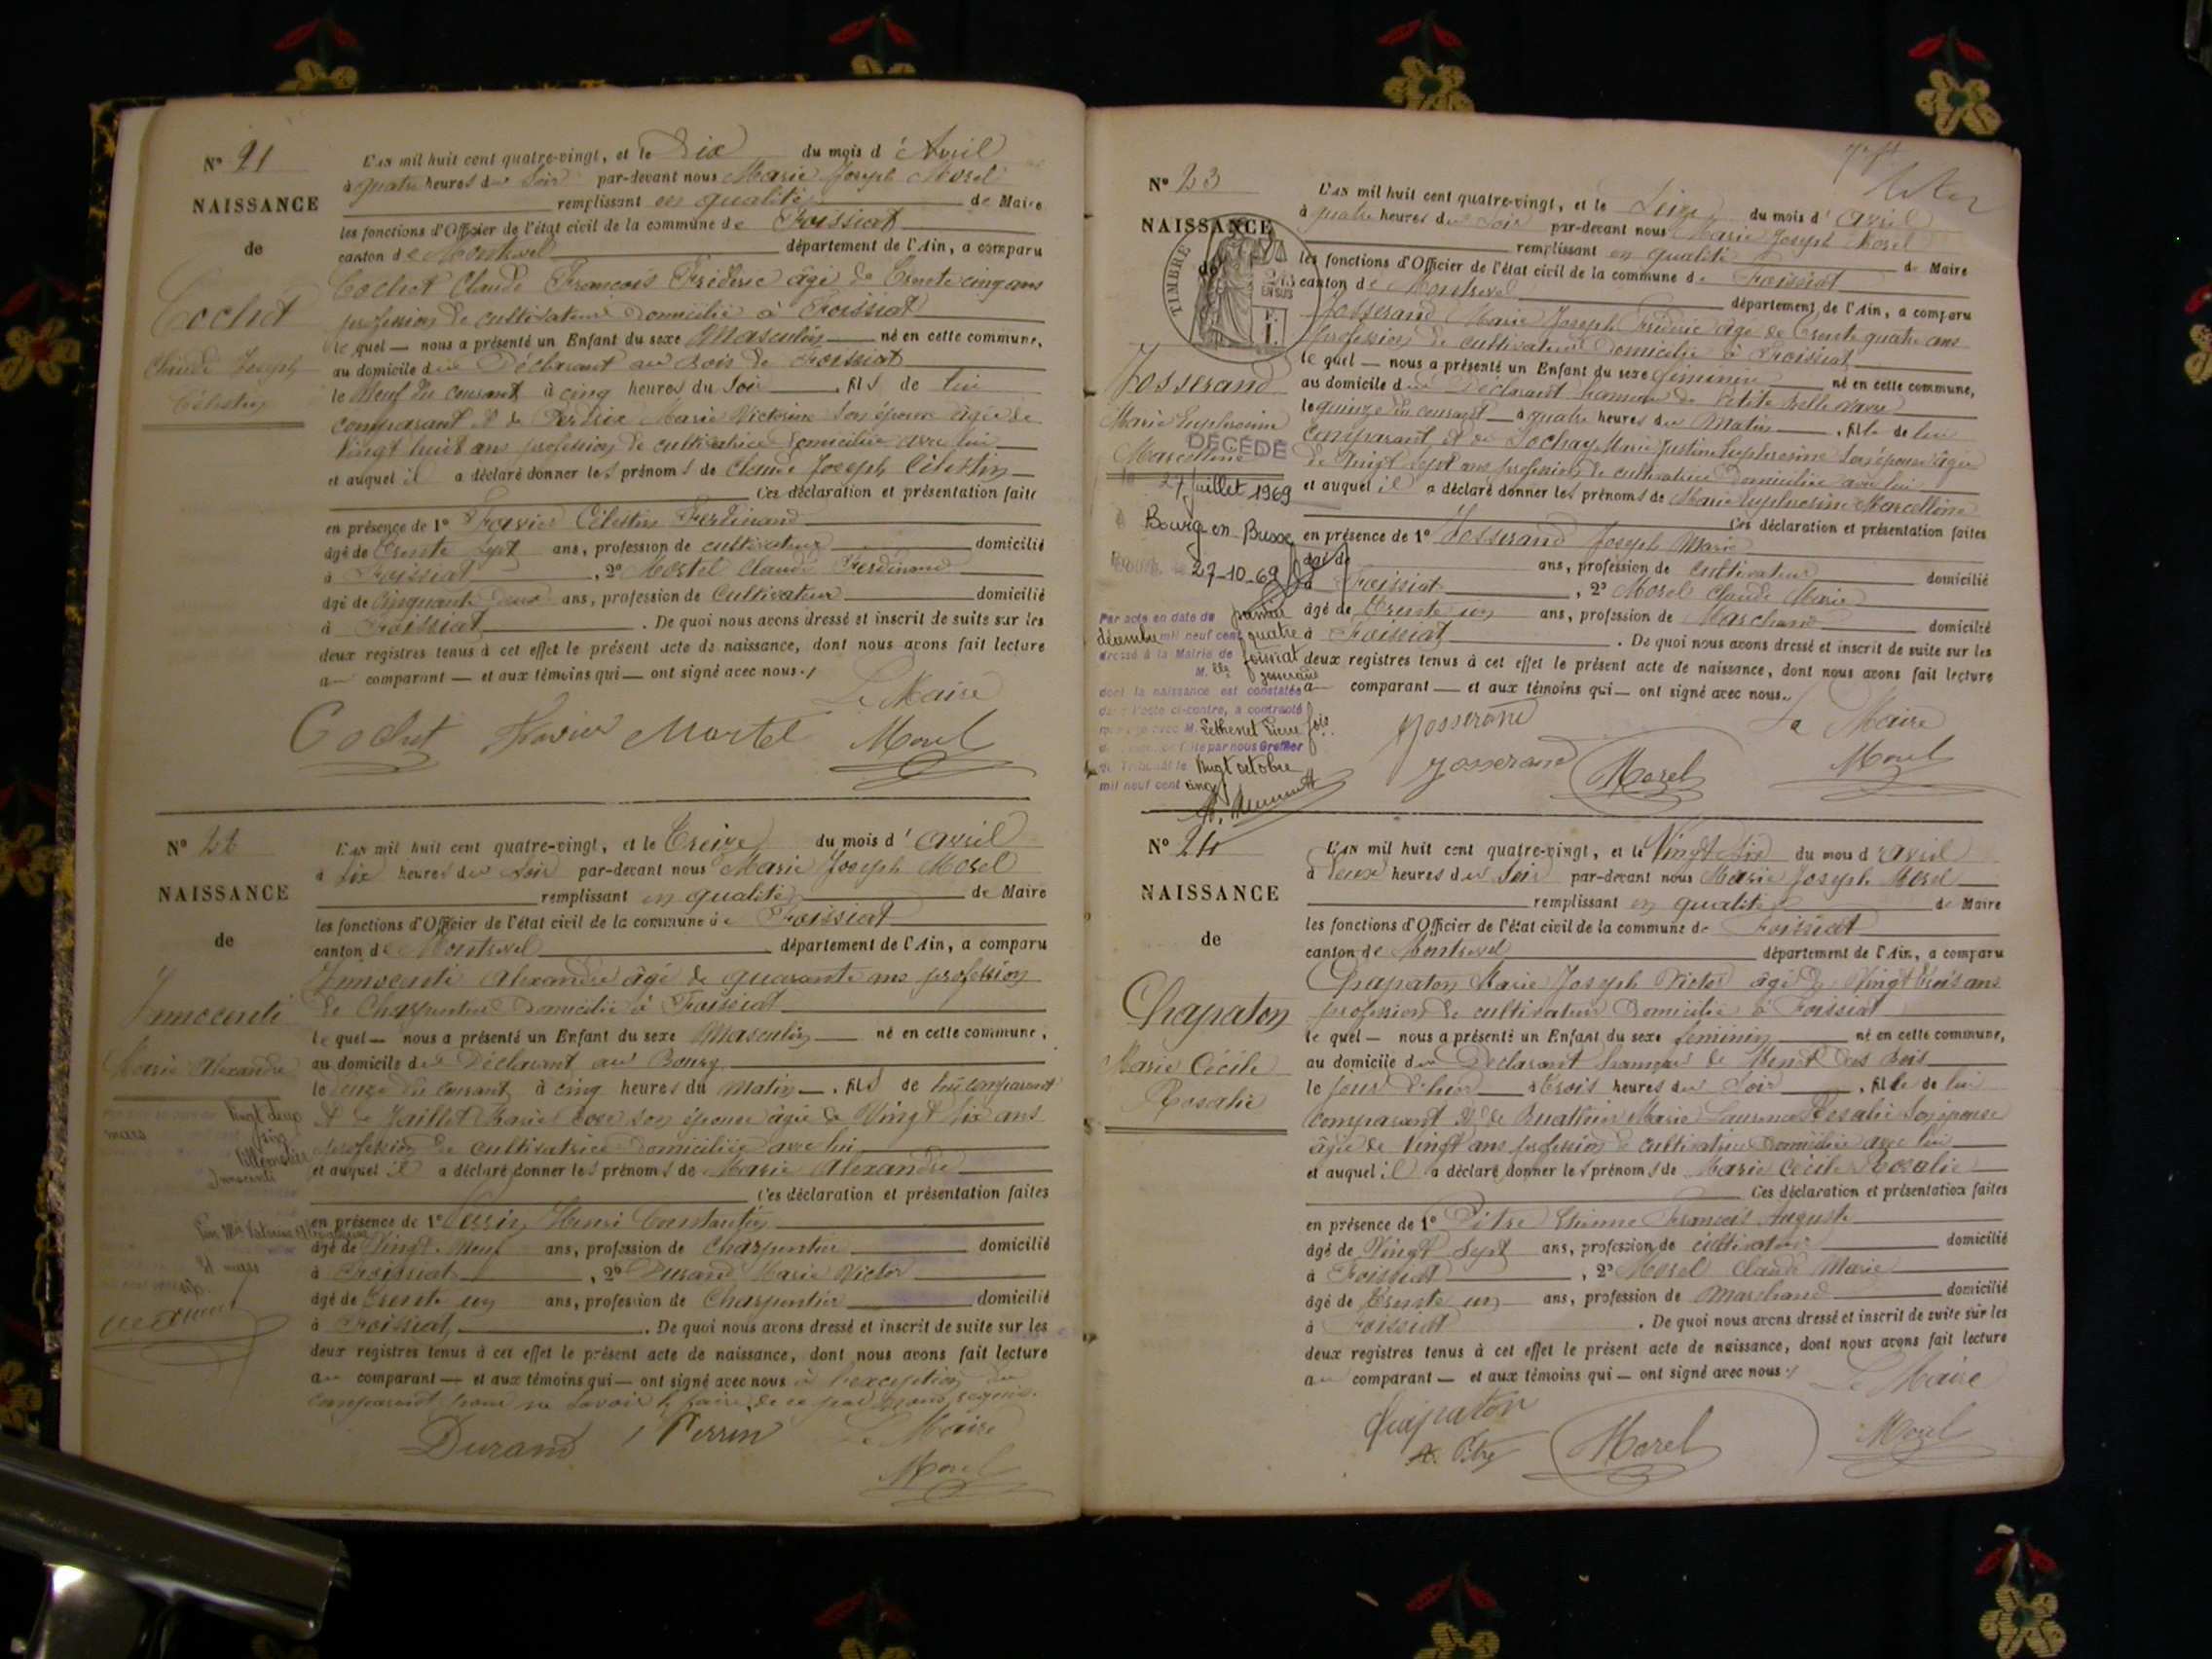 N° 21
NAISSANCE
de
Cochet
Claude Joseph
Célestin
L'AN mil huit cent quatre-vingt, et le Dix du mois d'Avril
à quatre heures du Soir par-devant nous Marie Joseph Morel
remplissant en qualité de Maire
les fonctions d'Officier de l'état civil de la commune de Foissiat
canton de Montrevel département de l'Ain, a comparu
Cochet Claude François Fréderic âgé de Trente cinq ans
profession de cultivateur domicilié à Foissiat
le quel — nous a présenté un Enfant du sexe Masculin né en cette commune,
au domicile du Déclarant au Bois de Foissiat
le Neuf du courant à cinq heures du Soir, fils de lui
comparant et de Perdrix Marie Victorine son épouse âgée de
Vingt huit ans profession de cultivatrice domiciliée avec lui
et auquel il a déclaré donner les prénoms de Claude Joseph Célestin
Ces déclaration et présentation faites
en présence de 1° Favier Célestin Ferdinand
âgé de Trente sept ans, profession de cultivateur domicilié
à Foissiat, 2° Mortel Claude Ferdinand
âgé de Cinquante deux ans, profession de Cultivateur domicilié
à Foissiat. De quoi nous avons dressé et inscrit de suite sur les
deux registres tenus à cet effet le présent acte de naissance, dont nous avons fait lecture
au comparant — et aux témoins qui — ont signé avec nous.
Le Maire
Cochet Favier Mortel Morel
N° 22
NAISSANCE
de
Innocenti
Marie Alexandre
Vingt deux
mars
Innocenti
L'AN mil huit cent quatre-vingt, et le Treize du mois d'avril
à Six heures du Soir par-devant nous Marie Joseph Morel
remplissant en qualité de Maire
les fonctions d'Officier de l'état civil de la commune de Foissiat
canton de Montrevel département de l'Ain, a comparu
Innocenti Alexandre âgé de quarante ans profession
de Charpentier domicilié à Foissiat
le quel — nous a présenté un Enfant du sexe Masculin né en cette commune,
au domicile du Déclarant au Bourg
le douze du courant à cinq heures du matin, fils de lui comparant
et de Jaillet Marie Rose son épouse âgée de Vingt six ans
profession de cultivatrice domiciliée avec lui
et auquel il a déclaré donner les prénoms de Marie Alexandre
Ces déclaration et présentation faites
en présence de 1° Perrin Henri Constantin
âgé de Vingt Neuf ans, profession de Charpentier domicilié
à Foissiat, 2° Durand Marie Victor
âgé de Trente un ans, profession de Charpentier domicilié
à Foissiat. De quoi nous avons dressé et inscrit de suite sur les
deux registres tenus à cet effet le présent acte de naissance, dont nous avons fait lecture
au comparant — et aux témoins qui — ont signé avec nous à l'exception du
comparant pour ne savoir le faire de ce par nous requis.
Durand Perrin Le Maire
Morel
N° 23
NAISSANCE
de
TIMBRE
2/10 EN SUS
Josserand
Marie Euphrosine
Marcelline
DÉCÉDÉ
le 21 Juillet 1969
à Bourg en Bresse
27-10-69
Par acte en date du premier
décembre mil neuf cent quatre
dressé à la Mairie de Foissiat
M.elle Josserand
dont la naissance est constatée
dans l'acte ci-contre, a contracté
mariage avec M. Pethenet Pierre fois
par nous Greffier
du Tribunal le Vingt octobre
mil neuf cent cinq
L'AN mil huit cent quatre-vingt, et le Seize du mois d'avril
à quatre heures du Soir par-devant nous Marie Joseph Morel
remplissant en qualité de Maire
les fonctions d'Officier de l'état civil de la commune de Foissiat
canton de Montrevel département de l'Ain, a comparu
Josserand Marie Joseph Fréderic âgé de Trente quatre ans
profession de cultivateur domicilié à Foissiat
le quel — nous a présenté un Enfant du sexe féminin né en cette commune,
au domicile du Déclarant hameau de Petite
le quinze du courant à quatre heures du Matin, fille de lui
Comparant et de Sochay Marie Justine Euphrosine son épouse âgée
de Vingt sept ans profession de cultivatrice domiciliée avec lui
et auquel il a déclaré donner les prénoms de Marie Euphrosine Marcelline
Ces déclaration et présentation faites
en présence de 1° Josserand Joseph Marie
âgé de ans, profession de Cultivateur domicilié
à Foissiat, 2° Morel Claude Marie
âgé de Trente un ans, profession de Marchand domicilié
à Foissiat. De quoi nous avons dressé et inscrit de suite sur les
deux registres tenus à cet effet le présent acte de naissance, dont nous avons fait lecture
au comparant — et aux témoins qui — ont signé avec nous.
Josserand Le Maire
Josserand Morel Morel
N° 24
NAISSANCE
de
Chapaton
Marie Cécile
Rosalie
L'AN mil huit cent quatre-vingt, et le Vingt Six du mois d'avril
à Deux heures du Soir par-devant nous Marie Joseph Morel
remplissant en qualité de Maire
les fonctions d'Officier de l'état civil de la commune de Foissiat
canton de Montrevel département de l'Ain, a comparu
Chapaton Marie Joseph Victor âgé de Vingt trois ans
profession de cultivateur domicilié à Foissiat
le quel — nous a présenté un Enfant du sexe féminin né en cette commune,
au domicile du Déclarant hameau de des Bois
le jour d'hier à trois heures du Soir, fille de lui
Comparant et de Buathier Marie Laurence Rosalie son épouse
âgée de Vingt ans profession de cultivatrice domiciliée avec lui
et auquel il a déclaré donner les prénoms de Marie Cécile Rosalie
Ces déclaration et présentation faites
en présence de 1° Pitre Etienne François Auguste
âgé de Vingt Sept ans, profession de cultivateur domicilié
à Foissiat, 2° Morel Claude Marie
âgé de Trente un ans, profession de Marchand domicilié
à Foissiat. De quoi nous avons dressé et inscrit de suite sur les
deux registres tenus à cet effet le présent acte de naissance, dont nous avons fait lecture
au comparant — et aux témoins qui — ont signé avec nous.
Chapaton Le Maire
Pitre Morel Morel